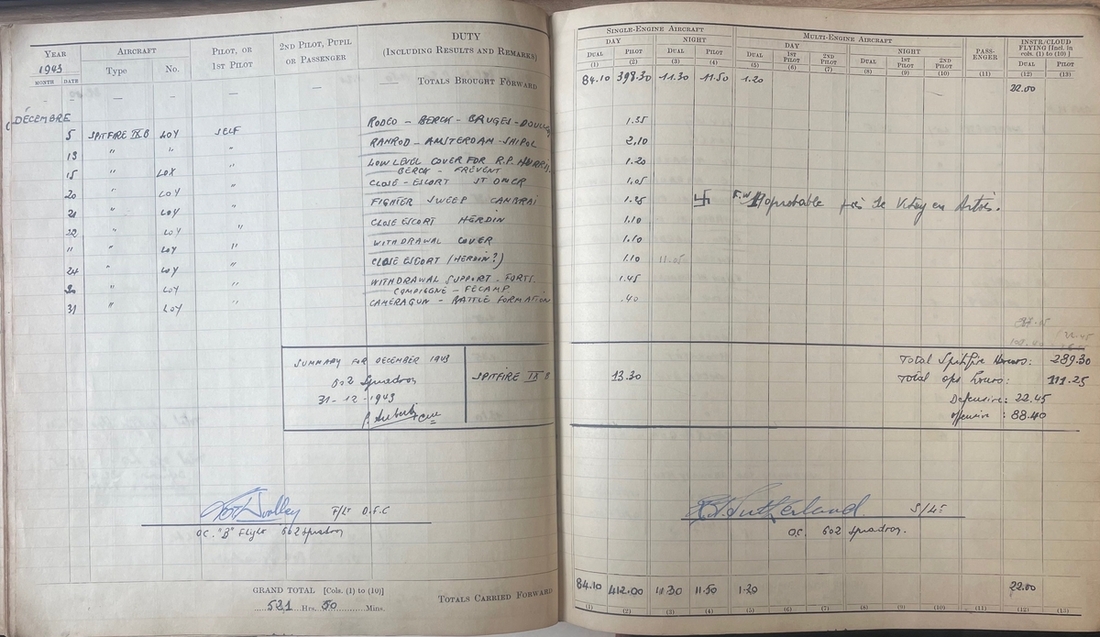 YEAR AIRCRAFT PILOT, OR 1ST PILOT 2ND PILOT, PUPIL OR PASSENGER DUTY (INCLUDING RESULTS AND REMARKS)
1943 Type No.
MONTH DATE
— — — — TOTALS BROUGHT FORWARD
DÉCEMBRE
5 SPITFIRE IX B LOY SELF RODEO - BERCK - BRUGES -
13 " " " RAMROD - AMSTERDAM - SHIPOL
15 " LOX " LOW LEVEL COVER FOR R.P.
BERCK - FREVENT
20 " LOY " CLOSE - ESCORT ST OMER
21 " LOY " FIGHTER SWEEP CAMBRAI
22 " LOY " CLOSE ESCORT HERDIN
" " LOY " WITHDRAWAL COVER
24 " LOY " CLOSE ESCORT (HERDIN?)
" LOY " WITHDRAWAL SUPPORT. FORTS.
COMPIEGNE - FECAMP
31 " LOY " CAMERAGUN - BATTLE FORMATION
SUMMARY FOR DECEMBER 1943
602 Squadron SPITFIRE IX B
31-12-1943
F/LT D.F.C
O.C. "B" Flight 602 Squadron
GRAND TOTAL [Cols. (1) to (10)]
521 Hrs. 50 Mins.
TOTALS CARRIED FORWARD
SINGLE-ENGINE AIRCRAFT MULTI-ENGINE AIRCRAFT PASS-ENGER INSTR/CLOUD FLYING [Incl. in cols. (1) to (10)]
DAY NIGHT DAY NIGHT
DUAL PILOT DUAL PILOT DUAL 1ST PILOT 2ND PILOT DUAL 1ST PILOT 2ND PILOT DUAL PILOT
(1) (2) (3) (4) (5) (6) (7) (8) (9) (10) (11) (12) (13)
84.10 398.30 11.30 11.50 1.20 22.00
1.35
2.10
1.20
1.05
1.25 卐 F.W. probable près de Vitry en Artois.
1.10
1.10
1.10 11.05
1.45
.40
Total Spitfire Hours: 289.30
13.30 Total ops hours: 111.25
Defensive: 22.45
offensive: 88.40
Sutherland S/Lr
O.C. 602 Squadron.
84.10 412.00 11.30 11.50 1.20 22.00
(1) (2) (3) (4) (5) (6) (7) (8) (9) (10) (11) (12) (13)